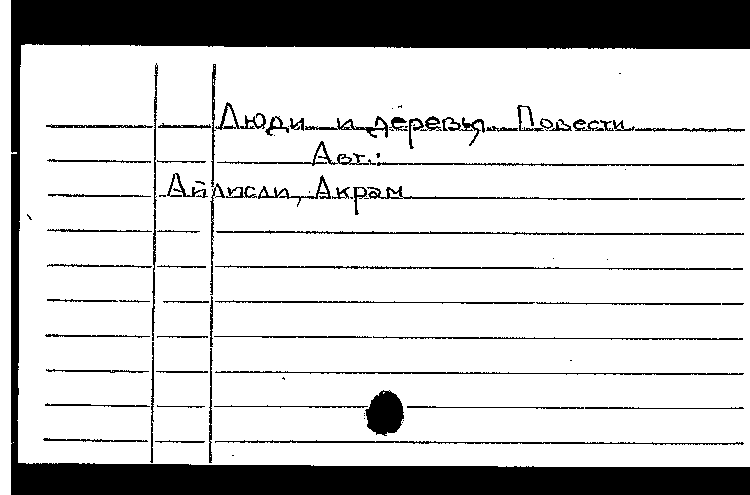 Люди и деревья. Повести
Авт.:
Айлисли, Акрам